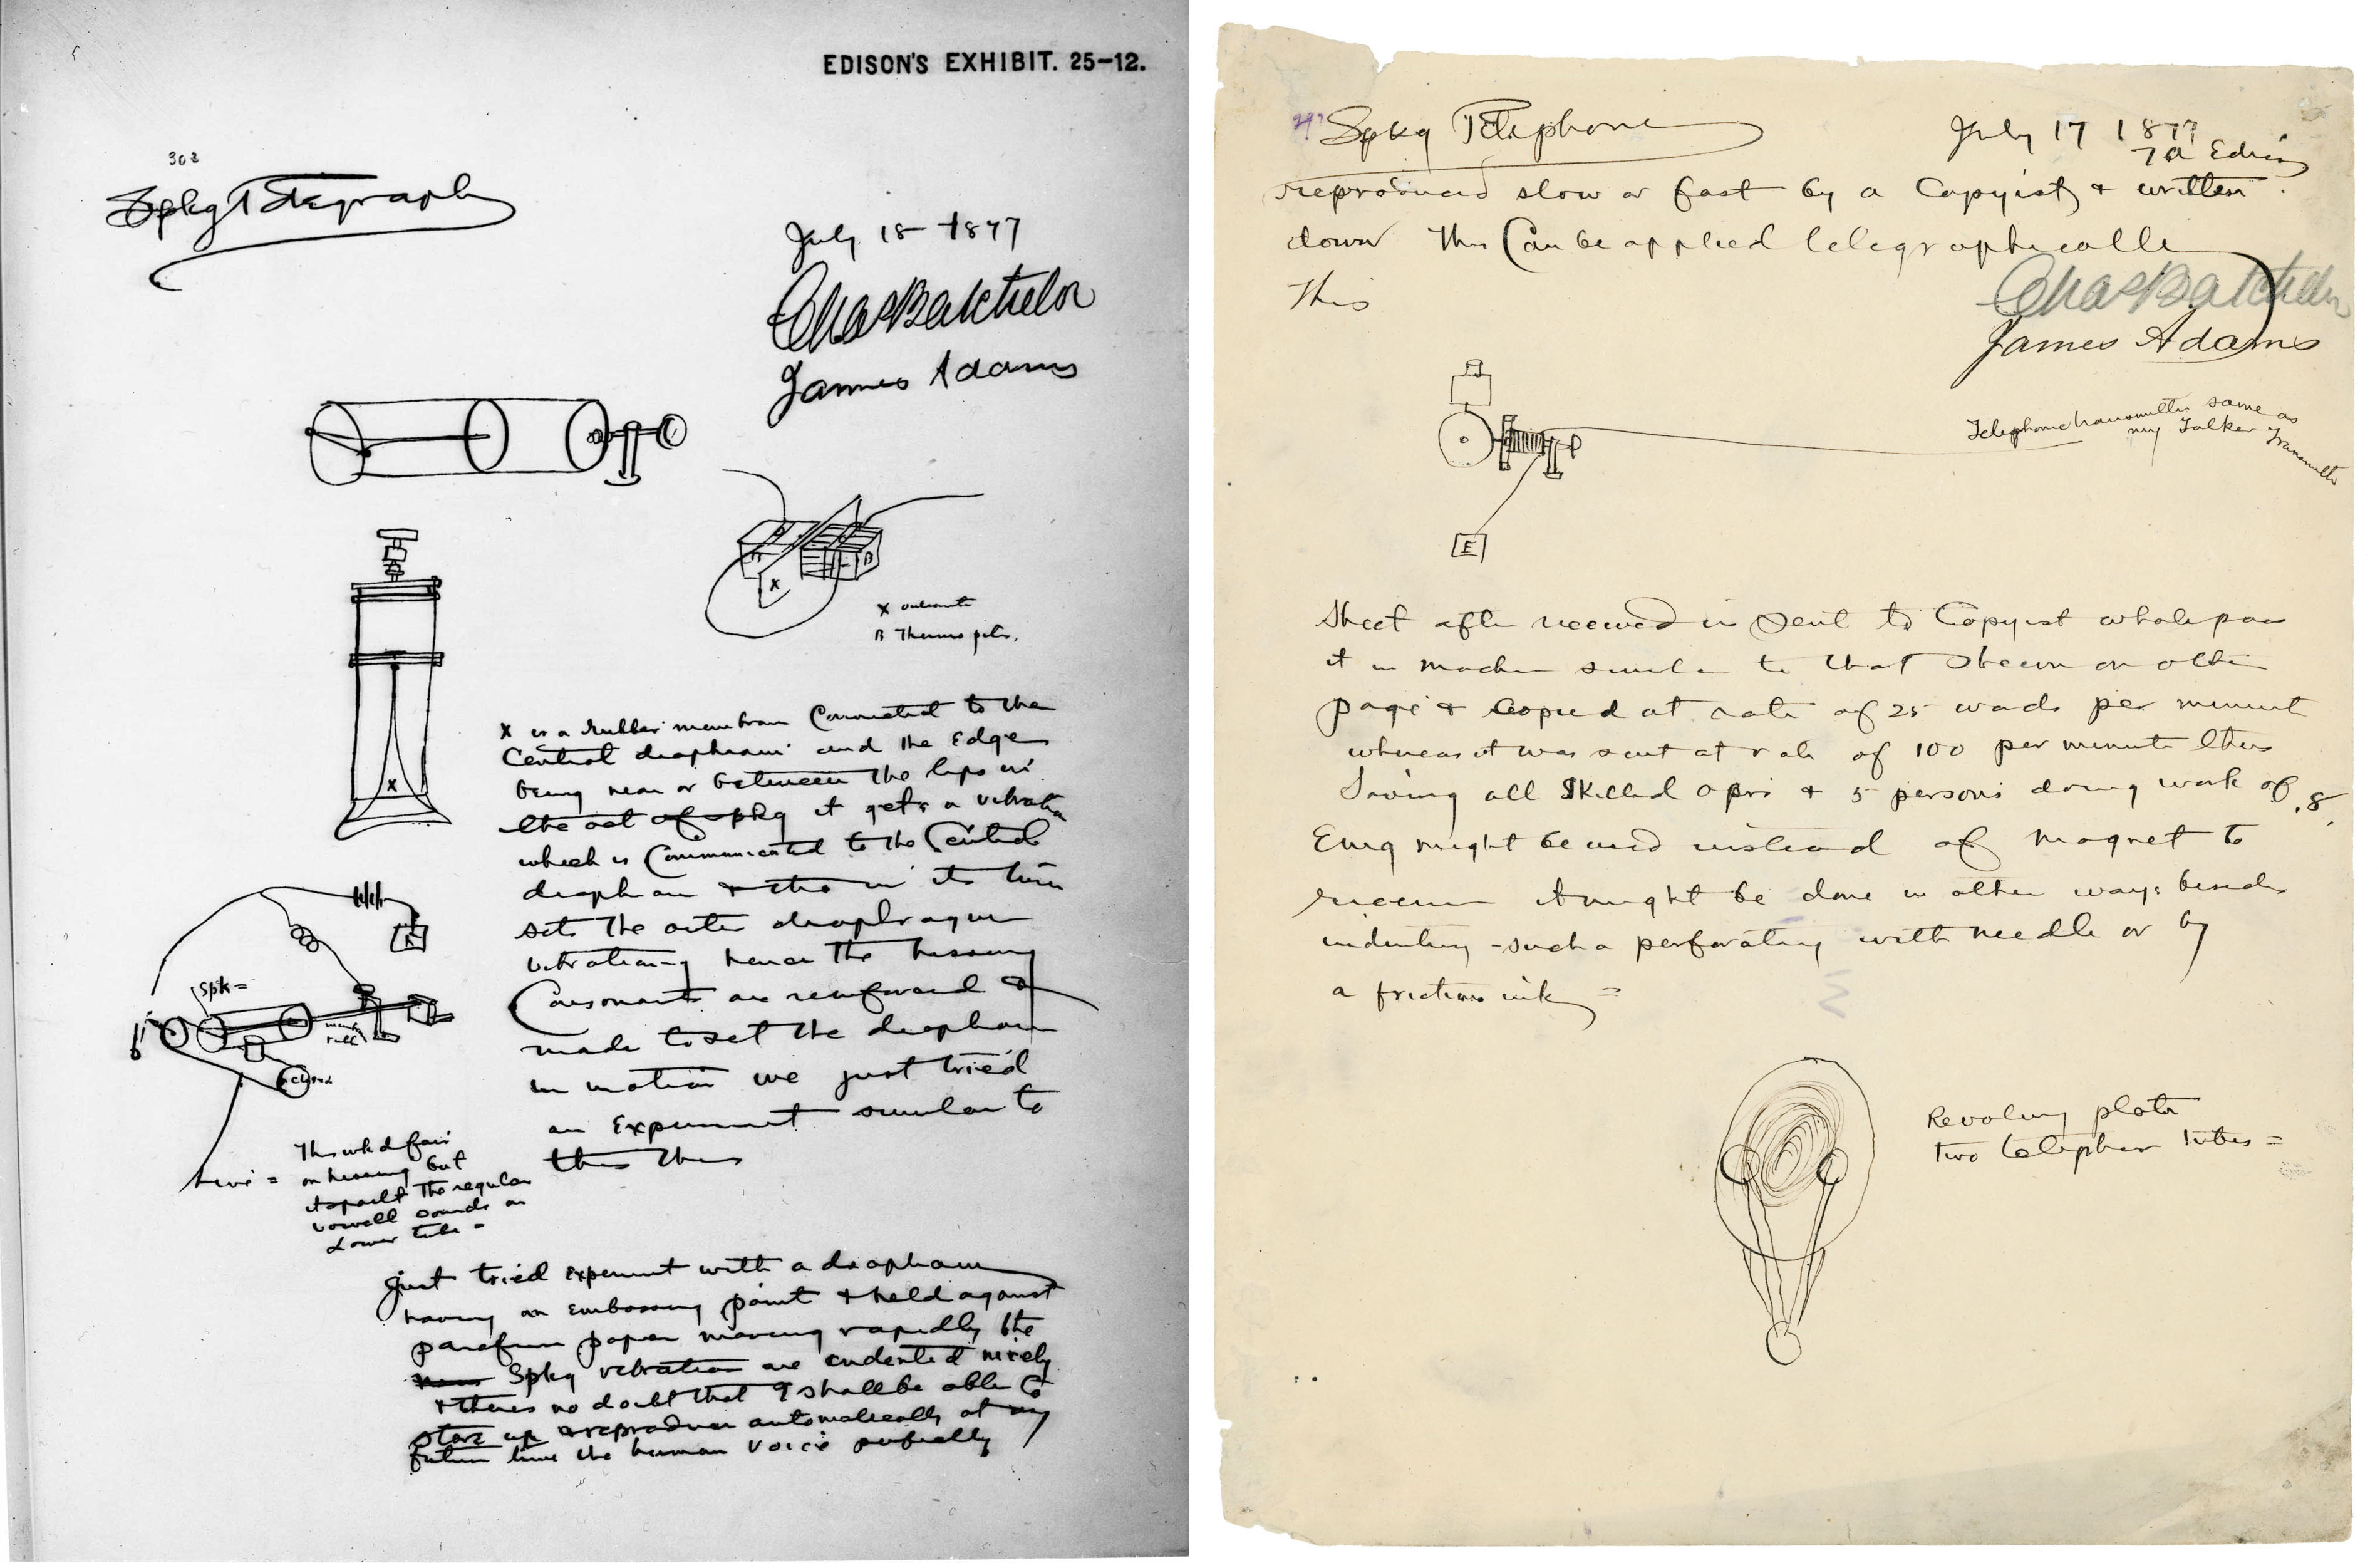 EDISON'S EXHIBIT. 25-12.
302
Spkg Telegraph
July 18 1877
Chas Batchelor
James Adams
X
B
X
B Thermo pile.
X
X is a rubber membrane connected to the
Central diaphram and the Edge
being near or between the lips in
the act of spkg it gets a vibration
which is Communicated to the Central
diaphram & this in its turn
sets the outer diaphragm
vibrating hence the hissing
Consonants are reinforced &
made to set the diaphram
in motion we just tried
an Experiment similar to
this thus
Spk =
This wkd fair
on hissing but
it spoilt the regular
vowell sounds on
Lower tube =
Just tried experiment with a diaphram
having an Embossing point & held against
parafin paper moving rapidly the
Spkg vibrations are indented nicely
& theres no doubt that I shall be able to
store up & reproduce automatically at any
future time the human voice perfectly
Spkg Telephone
July 17 1877
T A Edison
reproduced slow or fast by a Copyist & written
down This Can be applied telegraphically
This
Chas Batchelor
James Adams
Telephone transmitter same as
my Talker Transmitter
E
Sheet after received is Sent to Copyist who
it in machine similar to that Shewn on other
page & copied at rate of 25 words per minute
whereas it was sent at rate of 100 per minute thus
Saving all Skilled oprs & 5 persons doing work of 8.
Emg might be used instead of magnet to
it might be done in other ways besides
indenting - such a perforating with needle or by
a friction ink =
Revolving plate
two telephone tubes =